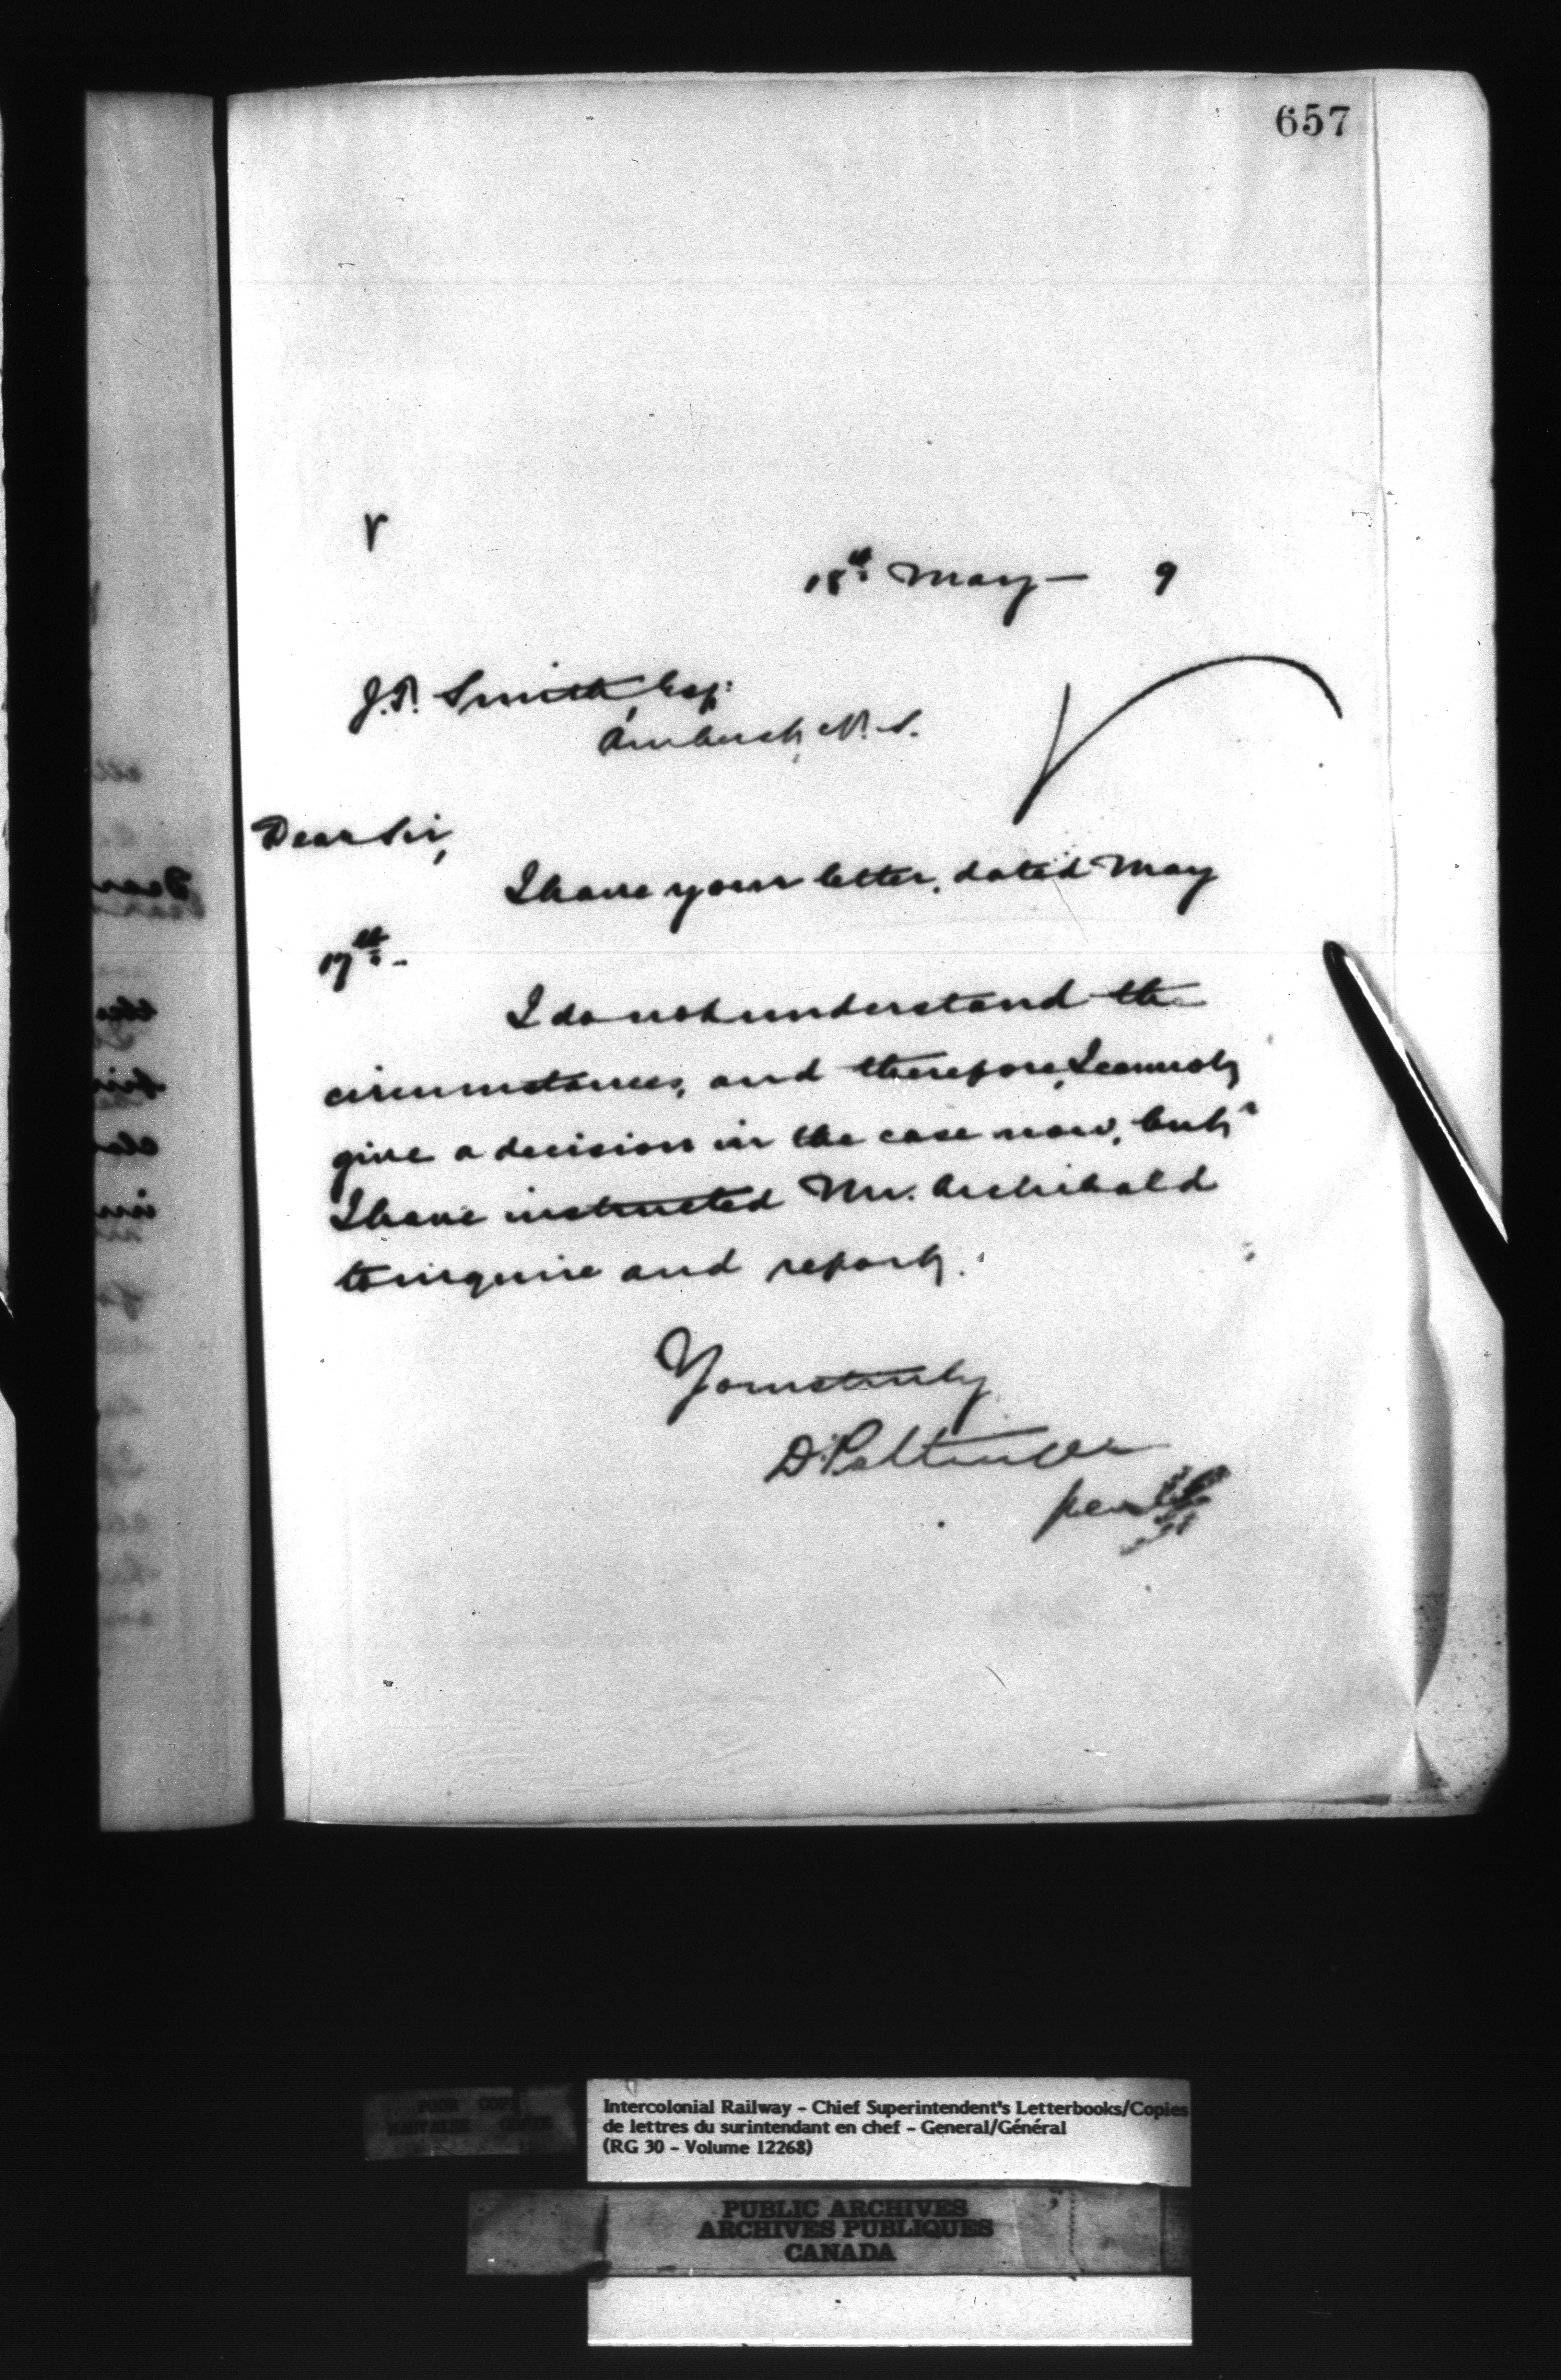 657
18th May — 9
J. R. Smith, Esq:
Amherst, N. S.
Dear Sir,
I have your letter, dated May
17th. -
I do not understand the
circumstances, and therefore, I cannot
give a decision in the case now, but
I have instructed Mr. Archibald
to inquire and report.
Yours truly
D. Pottinger
per
POOR COPY
MAUVAISE COPIE
Intercolonial Railway - Chief Superintendent's Letterbooks/Copies
de lettres du surintendant en chef - General/Général
(RG 30 - Volume 12268)
PUBLIC ARCHIVES
ARCHIVES PUBLIQUES
CANADA